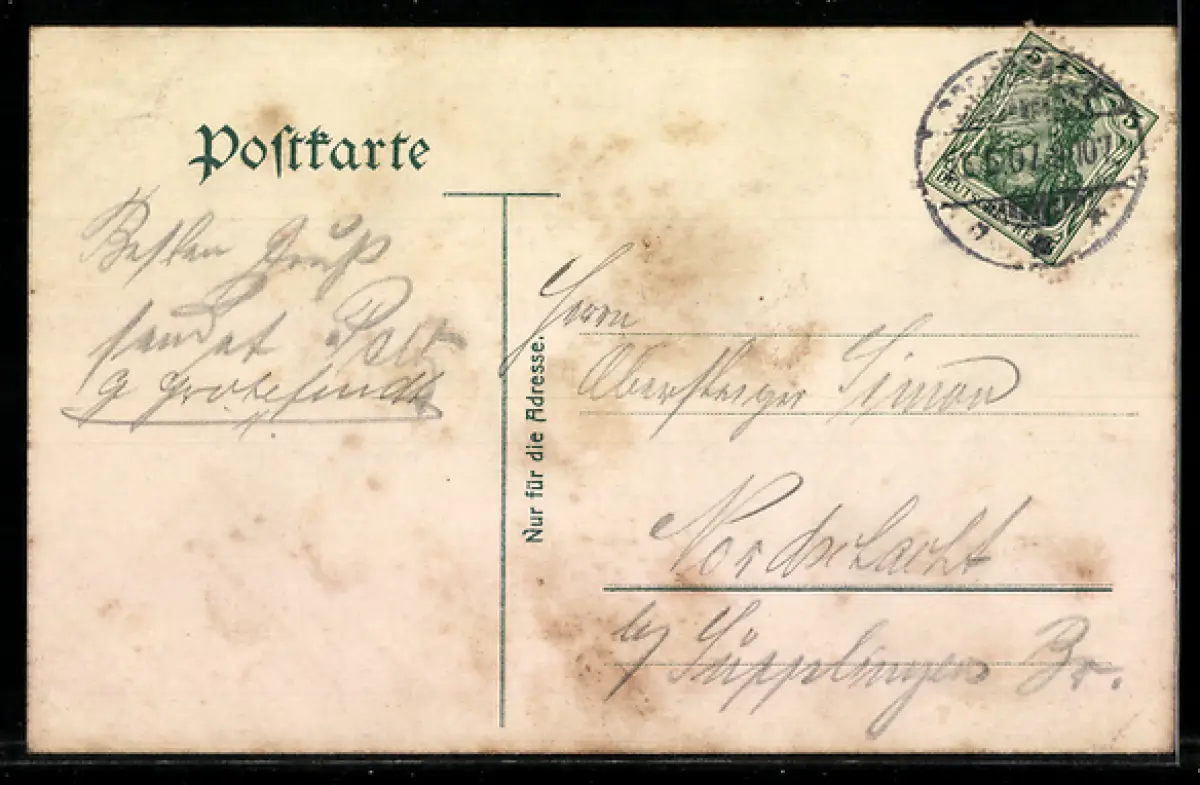 Postkarte
Besten Gruß
sendet
Grotefindt
Nur für die Adresse.
Herrn
Obersteiger Simon
Nordschacht
b/ Süpplingen Br.
5 5
DEUTSCHES REICH
6.07. 10-